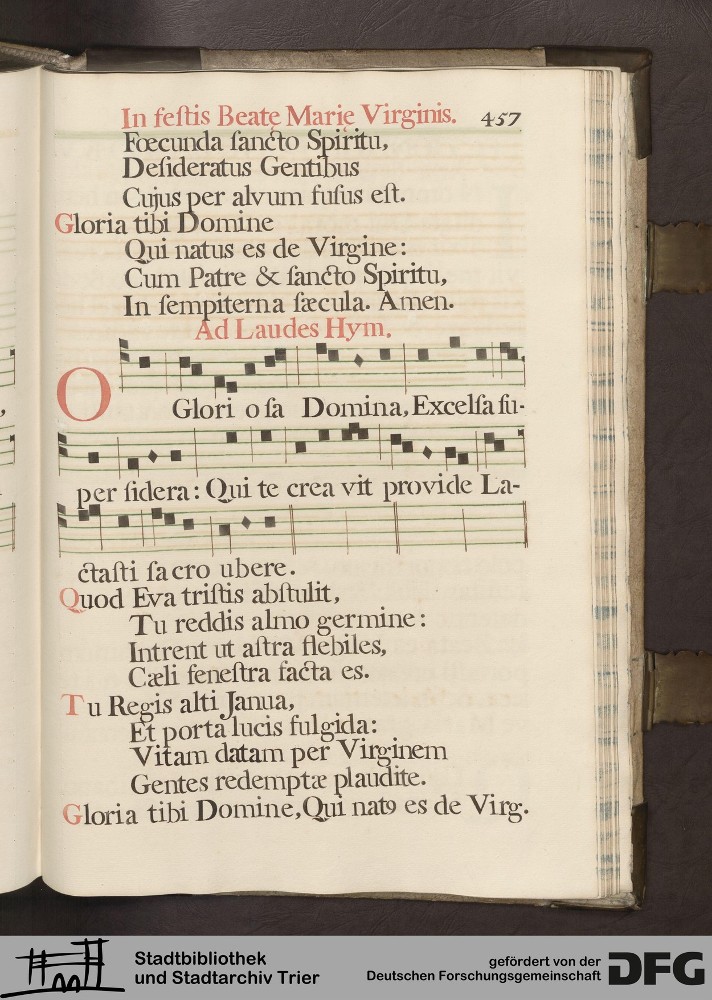 In feſtis Beatę Marię Virginis. 457
Fœcunda ſancto Spiritu,
Deſideratus Gentibus
Cujus per alvum fuſus eſt.
Gloria tibi Domine
Qui natus es de Virgine:
Cum Patre & ſancto Spiritu,
In ſempiterna ſæcula. Amen.
Ad Laudes Hym.
O Glori o ſa Domina, Excelſa ſu-
per ſidera: Qui te crea vit provide La-
ctaſti ſa cro ubere.
Quod Eva triſtis abſtulit,
Tu reddis almo germine:
Intrent ut aſtra flebiles,
Cæli feneſtra facta es.
Tu Regis alti Janua,
Et porta lucis fulgida:
Vitam datam per Virginem
Gentes redemptæ plaudite.
Gloria tibi Domine, Qui natꝯ es de Virg.
Stadtbibliothek
und Stadtarchiv Trier
gefördert von der
Deutschen Forschungsgemeinschaft
DFG